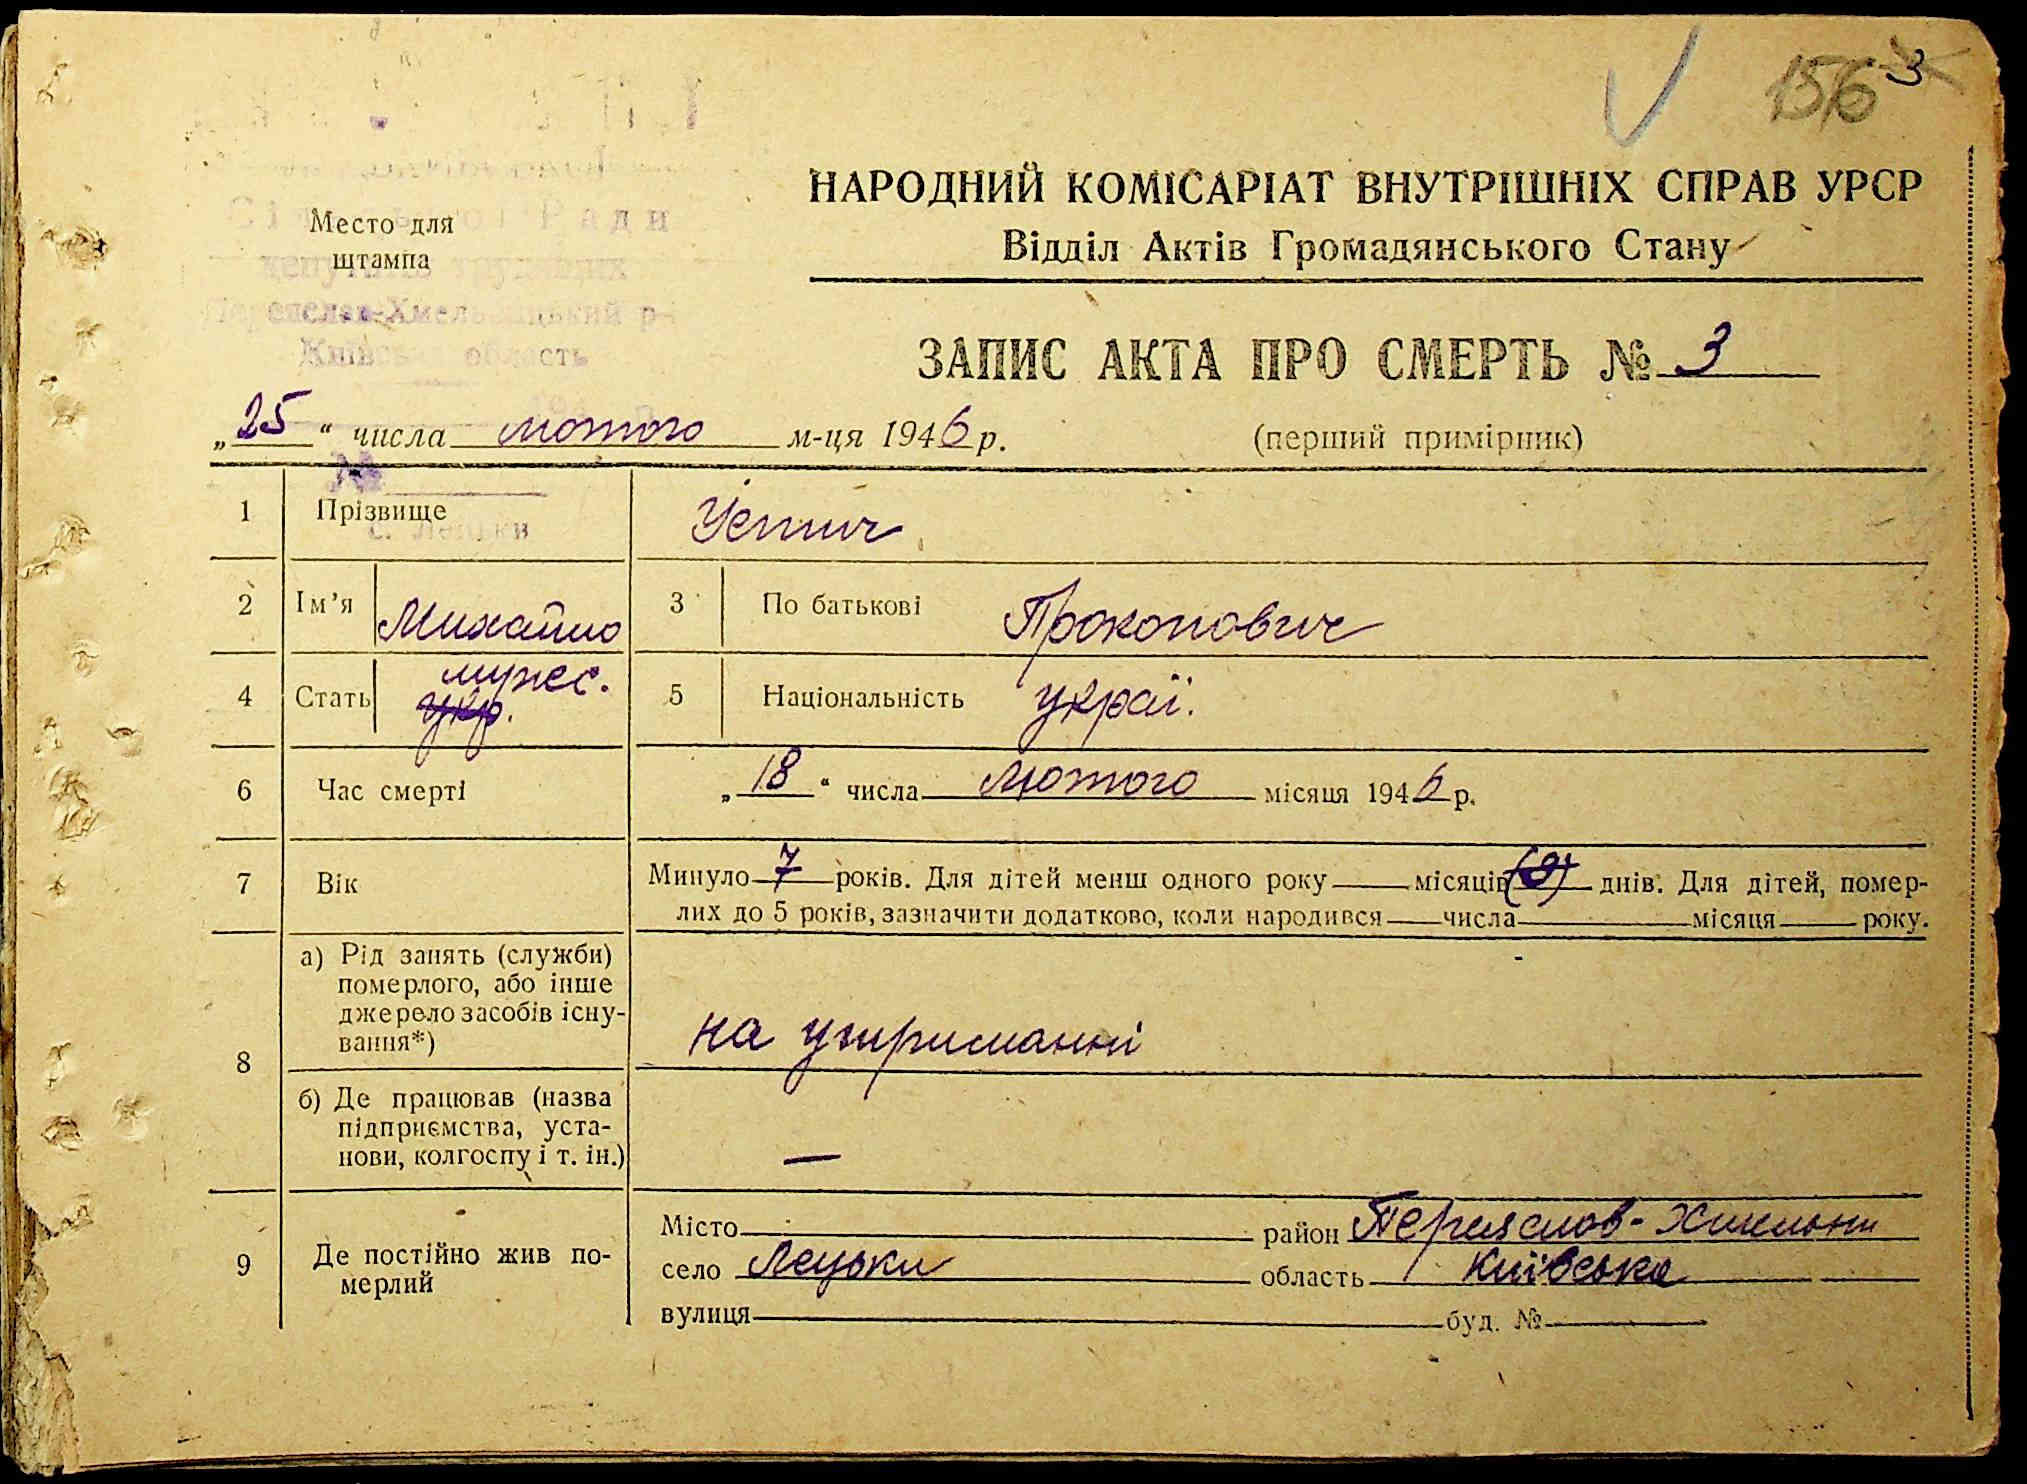 156 3
НАРОДНИЙ КОМІСАРІАТ ВНУТРІШНІХ СПРАВ УРСР
Відділ Актів Громадянського Стану
Место для
штампа
Сільської Ради
депутатів трудящих
Переяслав-Хмельницький р-н
Київська область
ЗАПИС АКТА ПРО СМЕРТЬ № 3
„25“ числа лютого м-ця 1946 р.
(перший примірник)
№
с. Лецьки
1 Прізвище Устич
2 Ім’я Михайло 3 По батькові Прокопович
4 Стать мужес. укр. 5 Національність украї.
6 Час смерті „18“ числа лютого місяця 1946 р.
7 Вік Минуло 7 років. Для дітей менш одного року місяців днів. Для дітей, помер-
лих до 5 років, зазначити додатково, коли народився числа місяця року.
8 а) Рід занять (служби)
померлого, або інше
джерело засобів існу-
вання*)
на утриманні
б) Де працював (назва
підприємства, уста-
нови, колгоспу і т. ін.)
—
9 Де постійно жив по-
мерлий
Місто район Переяслов-Хмельни
село Лецьки область Київська
вулиця буд. №